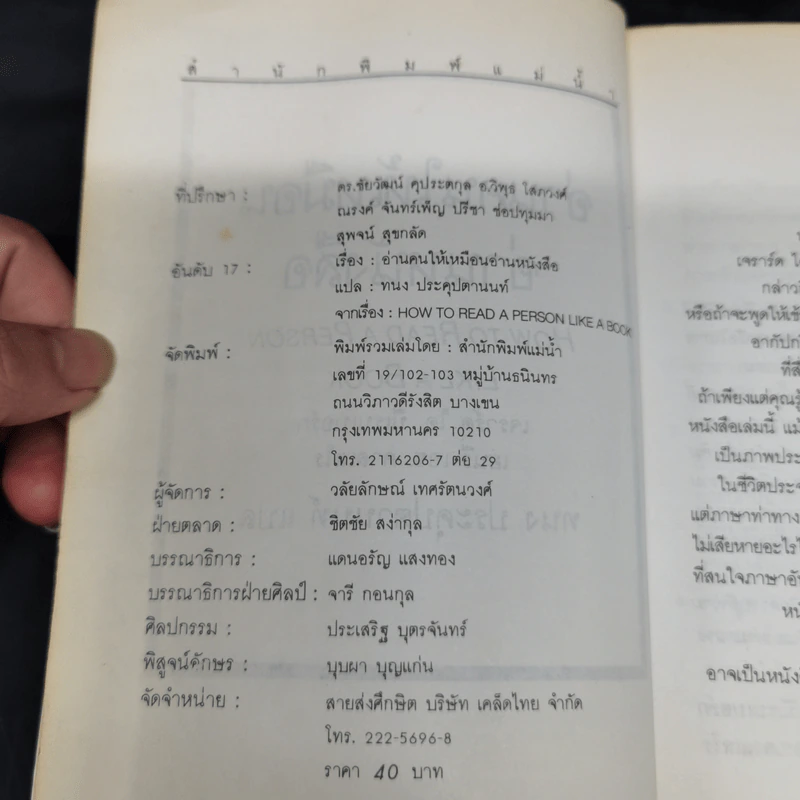 สำนักพิมพ์แม่น้ำ
ที่ปรึกษา : ดร.ชัยวัฒน์ คุประตกุล อ.วิพุธ โสภวงศ์
ณรงค์ จันทร์เพ็ญ ปรีชา ช่อปทุมมา
สุพจน์ สุขกลัด
อันดับ 17 : เรื่อง : อ่านคนให้เหมือนอ่านหนังสือ
แปล : ทนง ประคุปตานนท์
จากเรื่อง : HOW TO READ A PERSON LIKE A BOOK
จัดพิมพ์ : พิมพ์รวมเล่มโดย : สำนักพิมพ์แม่น้ำ
เลขที่ 19/102-103 หมู่บ้านธนินทร
ถนนวิภาวดีรังสิต บางเขน
กรุงเทพมหานคร 10210
โทร. 2116206-7 ต่อ 29
ผู้จัดการ : วลัยลักษณ์ เทศรัตนวงศ์
ฝ่ายตลาด : ชิตชัย สง่ากุล
บรรณาธิการ : แดนอรัญ แสงทอง
บรรณาธิการฝ่ายศิลป์ : จารี กอนกุล
ศิลปกรรม : ประเสริฐ บุตรจันทร์
พิสูจน์อักษร : บุบผา บุญแก่น
จัดจำหน่าย : สายส่งศึกษิต บริษัท เคล็ดไทย จำกัด
โทร. 222-5696-8
ราคา 40 บาท
เจราร์ด
กล่าว
หรือถ้าจะพูดให้เข้
อากัปก
ที่สื
ถ้าเพียงแต่คุณรู้
หนังสือเล่มนี้
เป็นภาพประ
ในชีวิตประจ
แต่ภาษาท่าทาง
ไม่เสียหายอะไร
ที่สนใจภาษาอัง
หนั
อาจเป็นหนังสื